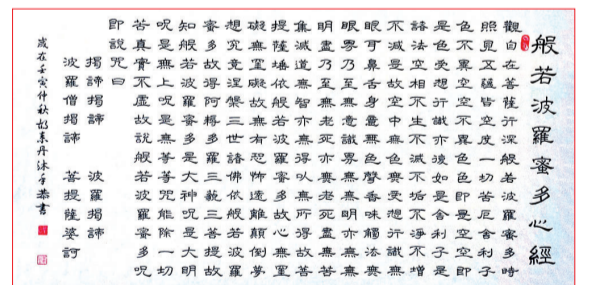 般若波羅蜜多心經
觀自在菩薩行深般若波羅蜜多時
照見五蘊皆空度一切苦厄舍利子
色不異空空不異色色即是空空即
是色受想行識亦復如是舍利子是
諸法空相不生不滅不垢不淨不增
不減是故空中無色無受想行識無
眼耳鼻舌身意無色聲香味觸法無
眼界乃至無意識界無無明亦無無
明盡乃至無老死亦無老死盡無苦
集滅道無智亦無得以無所得故菩
提薩埵依般若波羅蜜多故心無罣
礙無罣礙故無有恐怖遠離顛倒夢
想究竟涅槃三世諸佛依般若波羅
蜜多故得阿耨多羅三藐三菩提故
知般若波羅蜜多是大神咒是大明
咒是無上咒是無等等咒能除一切
苦真實不虛故說般若波羅蜜多咒
即說咒曰
揭諦揭諦 波羅揭諦
波羅僧揭諦 菩提薩婆訶
歲在壬寅仲秋 丹沐手恭書